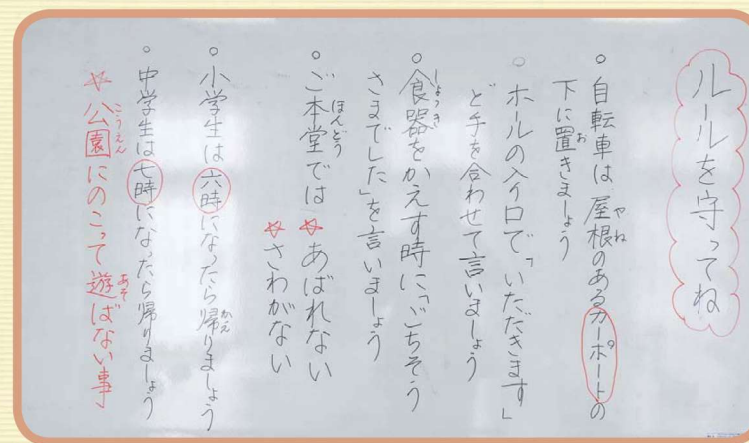 ルールを守ってね
○自転車は屋根のあるカーポートの
下に置きましょう
○ホールの入口で「いただきます」
と手を合わせて言いましょう
○食器をかえす時に「ごちそう
さまでした」を言いましょう
○ご本堂では☆あばれない
☆さわがない
○小学生は六時になったら帰りましょう
○中学生は七時になったら帰りましょう
☆公園にのこって遊ばない事